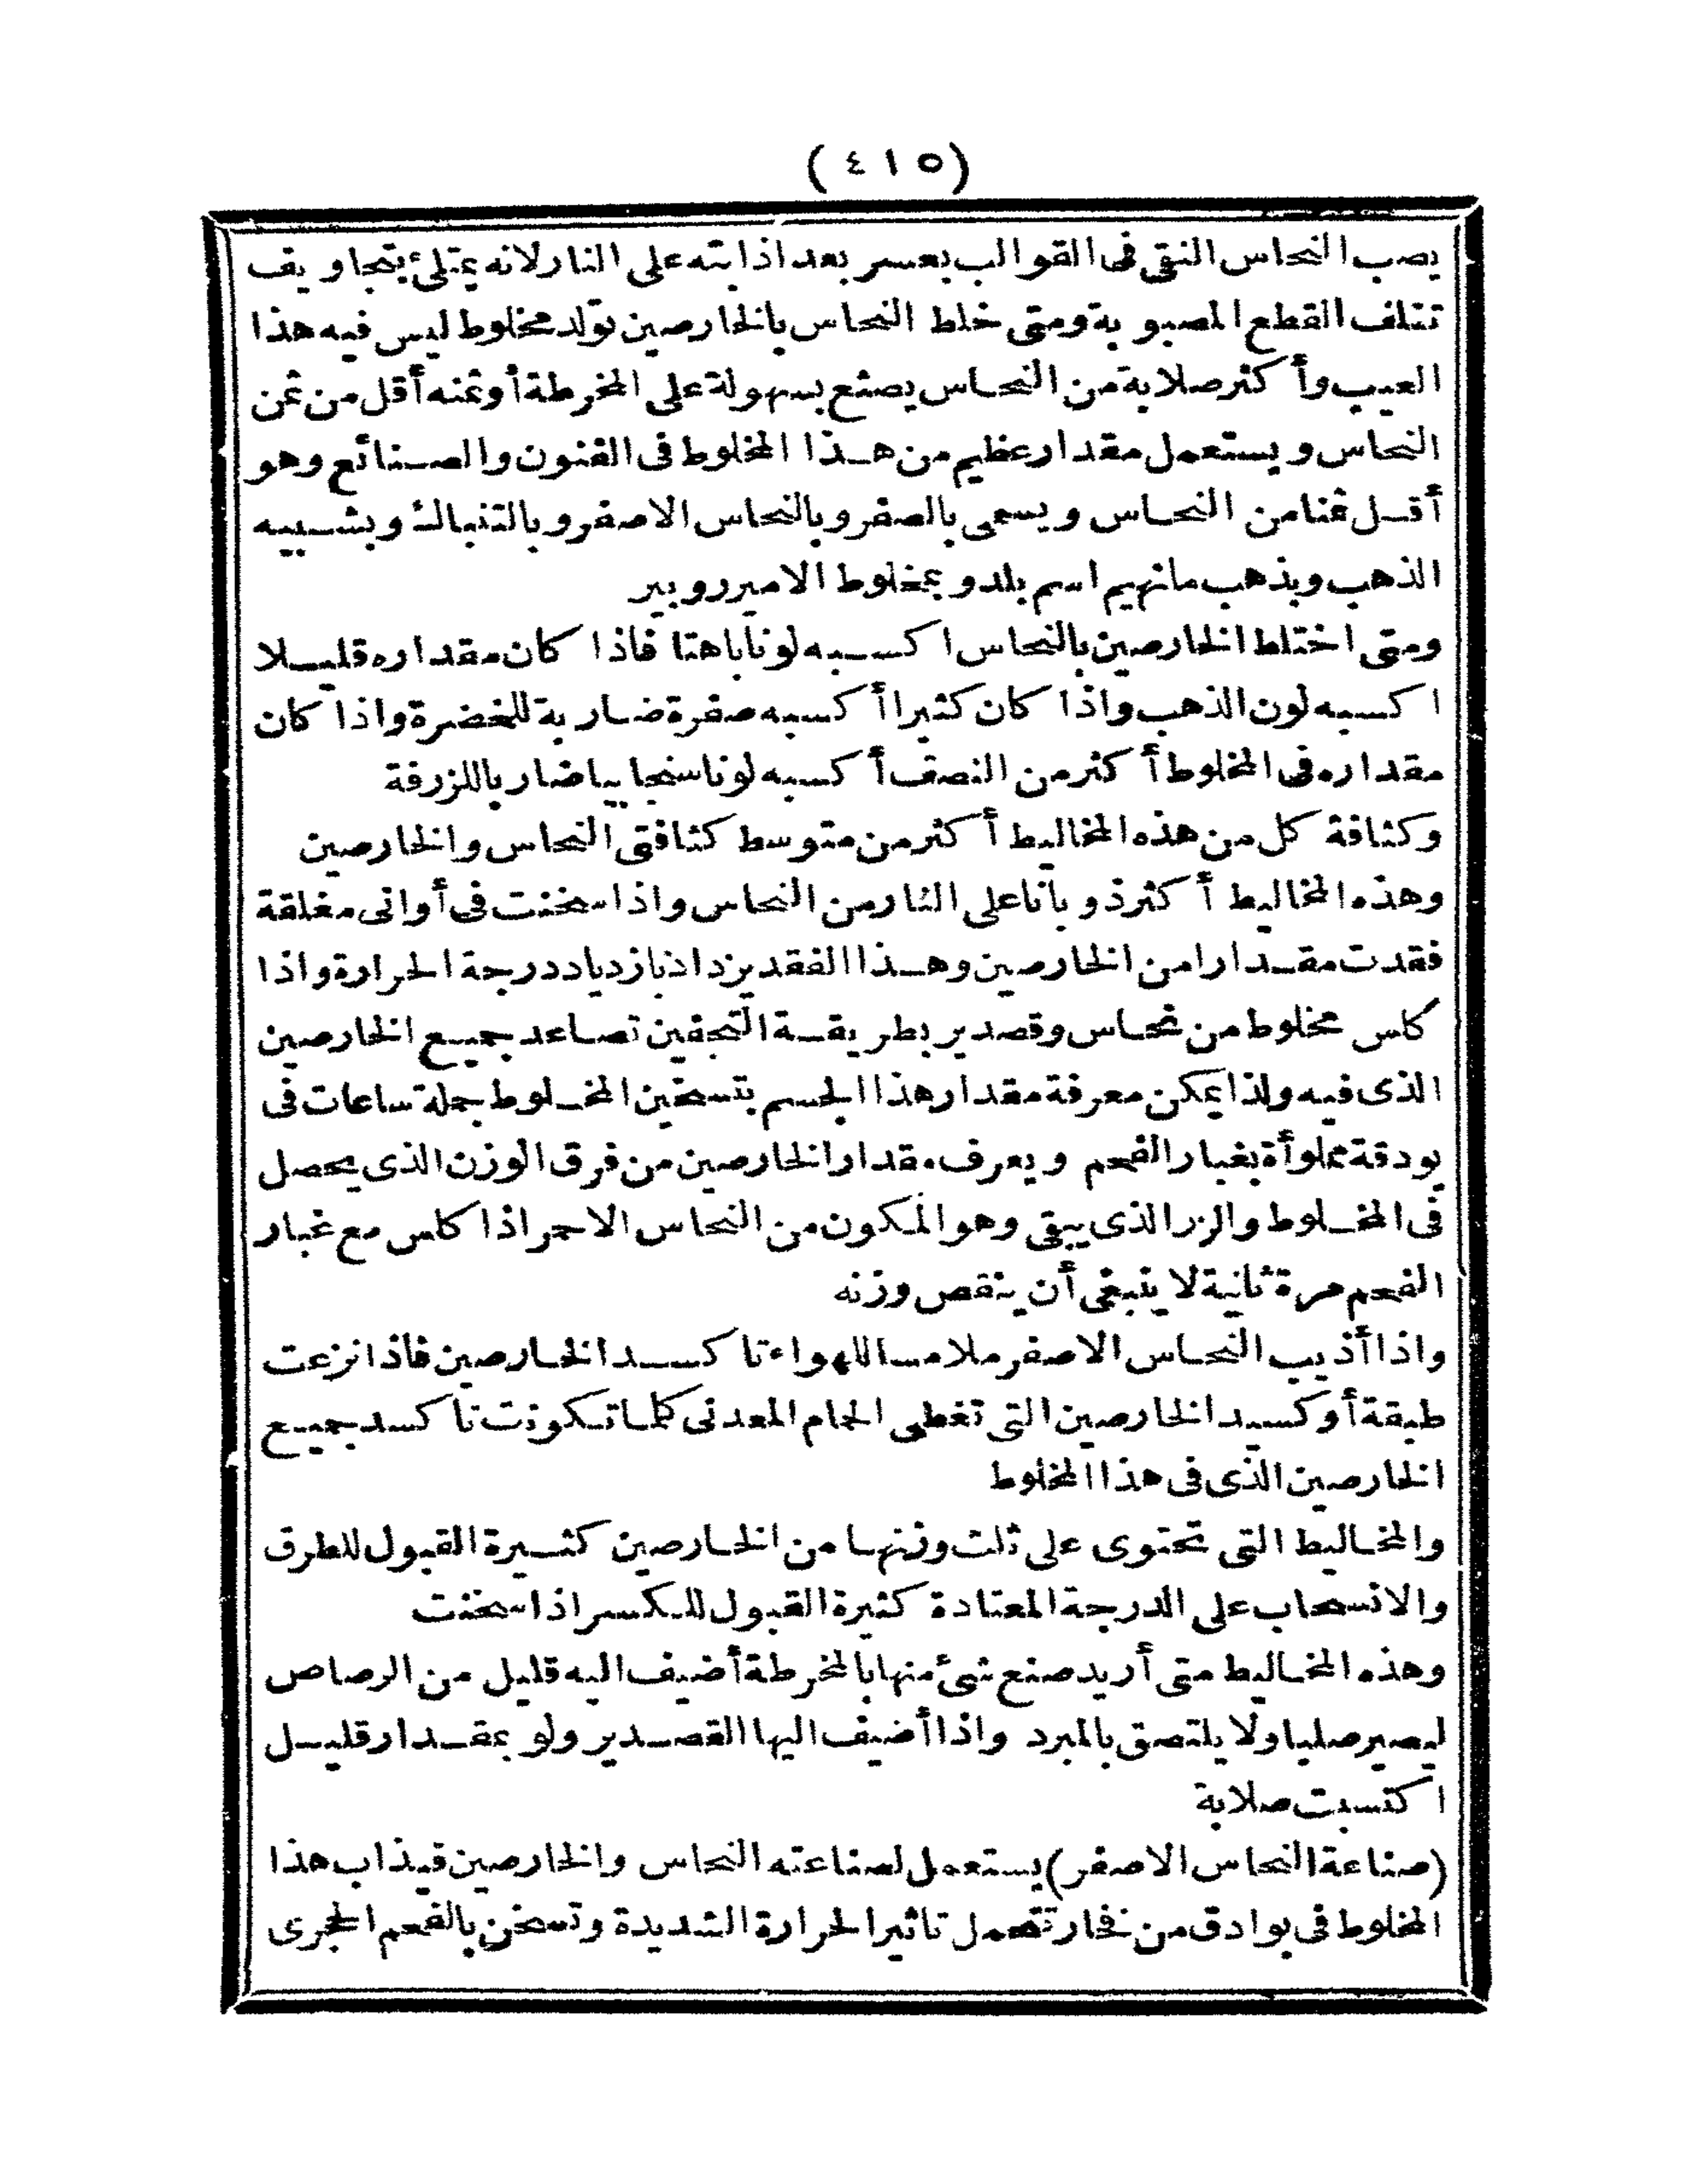 (٤١٥)
يصب النحاس النقي في القوالب بعسر بعد اذابته على النار لانه يمتلئ بتجاويف
تتلف القطع المصبوبة ومتى خلط النحاس بالخارصين تولد مخلوط ليس فيه هذا
العيب وأكثر صلابة من النحاس يصنع بسهولة على المخرطة أو ثمنه أقل من ثمن
النحاس ويستعمل مقدار عظيم من هذا المخلوط فى الفنون والصنائع وهو
أقل ثمنا من النحاس ويسمى بالصفر وبالنحاس الاصفر وبالتنباك وبشبيه
الذهب وبذهب مانهيم اسم بلد وبمخلوط الامير روبير
ومتى اختلط الخارصين بالنحاس اكسبه لونا باهتا فاذا كان مقداره قليلا
اكسبه لون الذهب واذا كان كثيرا أكسبه صفرة ضاربة للخضرة واذا كان
مقداره فى المخلوط أكثر من النصف أكسبه لونا سنجابيا ضاربا للزرقة
وكثافة كل من هذه المخاليط أكثر من متوسط كثافتى النحاس والخارصين
وهذه المخاليط أكثر ذوبانا على النار من النحاس واذا سخنت فى أوانى مغلقة
فقدت مقدارا من الخارصين وهذا الفقد يزداد بازدياد درجة الحرارة واذا
كلس مخلوط من نحاس وقصدير بطريقة التجفين تصاعد جميع الخارصين
الذى فيه ولذا يمكن معرفة مقدار هذا الجسم بتسخين المخلوط جملة ساعات فى
بودقة مملوأة بغبار الفحم ويعرف مقدار الخارصين من فرق الوزن الذى يحصل
فى المخلوط والزر الذى يبقى وهو المكون من النحاس الاحمر اذا كلس مع غبار
الفحم مرة ثانية لا ينبغى أن ينقص وزنه
واذا أذيب النحاس الاصفر ملامسا للهواء تاكسد الخارصين فاذا نزعت
طبقة أوكسيد الخارصين التى تغطى الحمام المعدنى كلما تكونت تاكسد جميع
الخارصين الذى فى هذا المخلوط
والمخاليط التى تحتوى على ثلث وزنها من الخارصين كثيرة القبول للطرق
والانسحاب على الدرجة المعتادة كثيرة القبول للكسر اذا سخنت
وهذه المخاليط متى أريد صنع شئ منها بالمخرطة أضيف اليه قليل من الرصاص
ليصير صلبا ولا يلتصق بالمبرد واذا أضيف اليها القصدير ولو بمقدار قليل
اكتسبت صلابة
(صناعة النحاس الاصفر) يستعمل لصناعته النحاس والخارصين فيذاب هذا
المخلوط فى بوادق من فخار تتحمل تاثير الحرارة الشديدة وتسخن بالفحم الحجرى